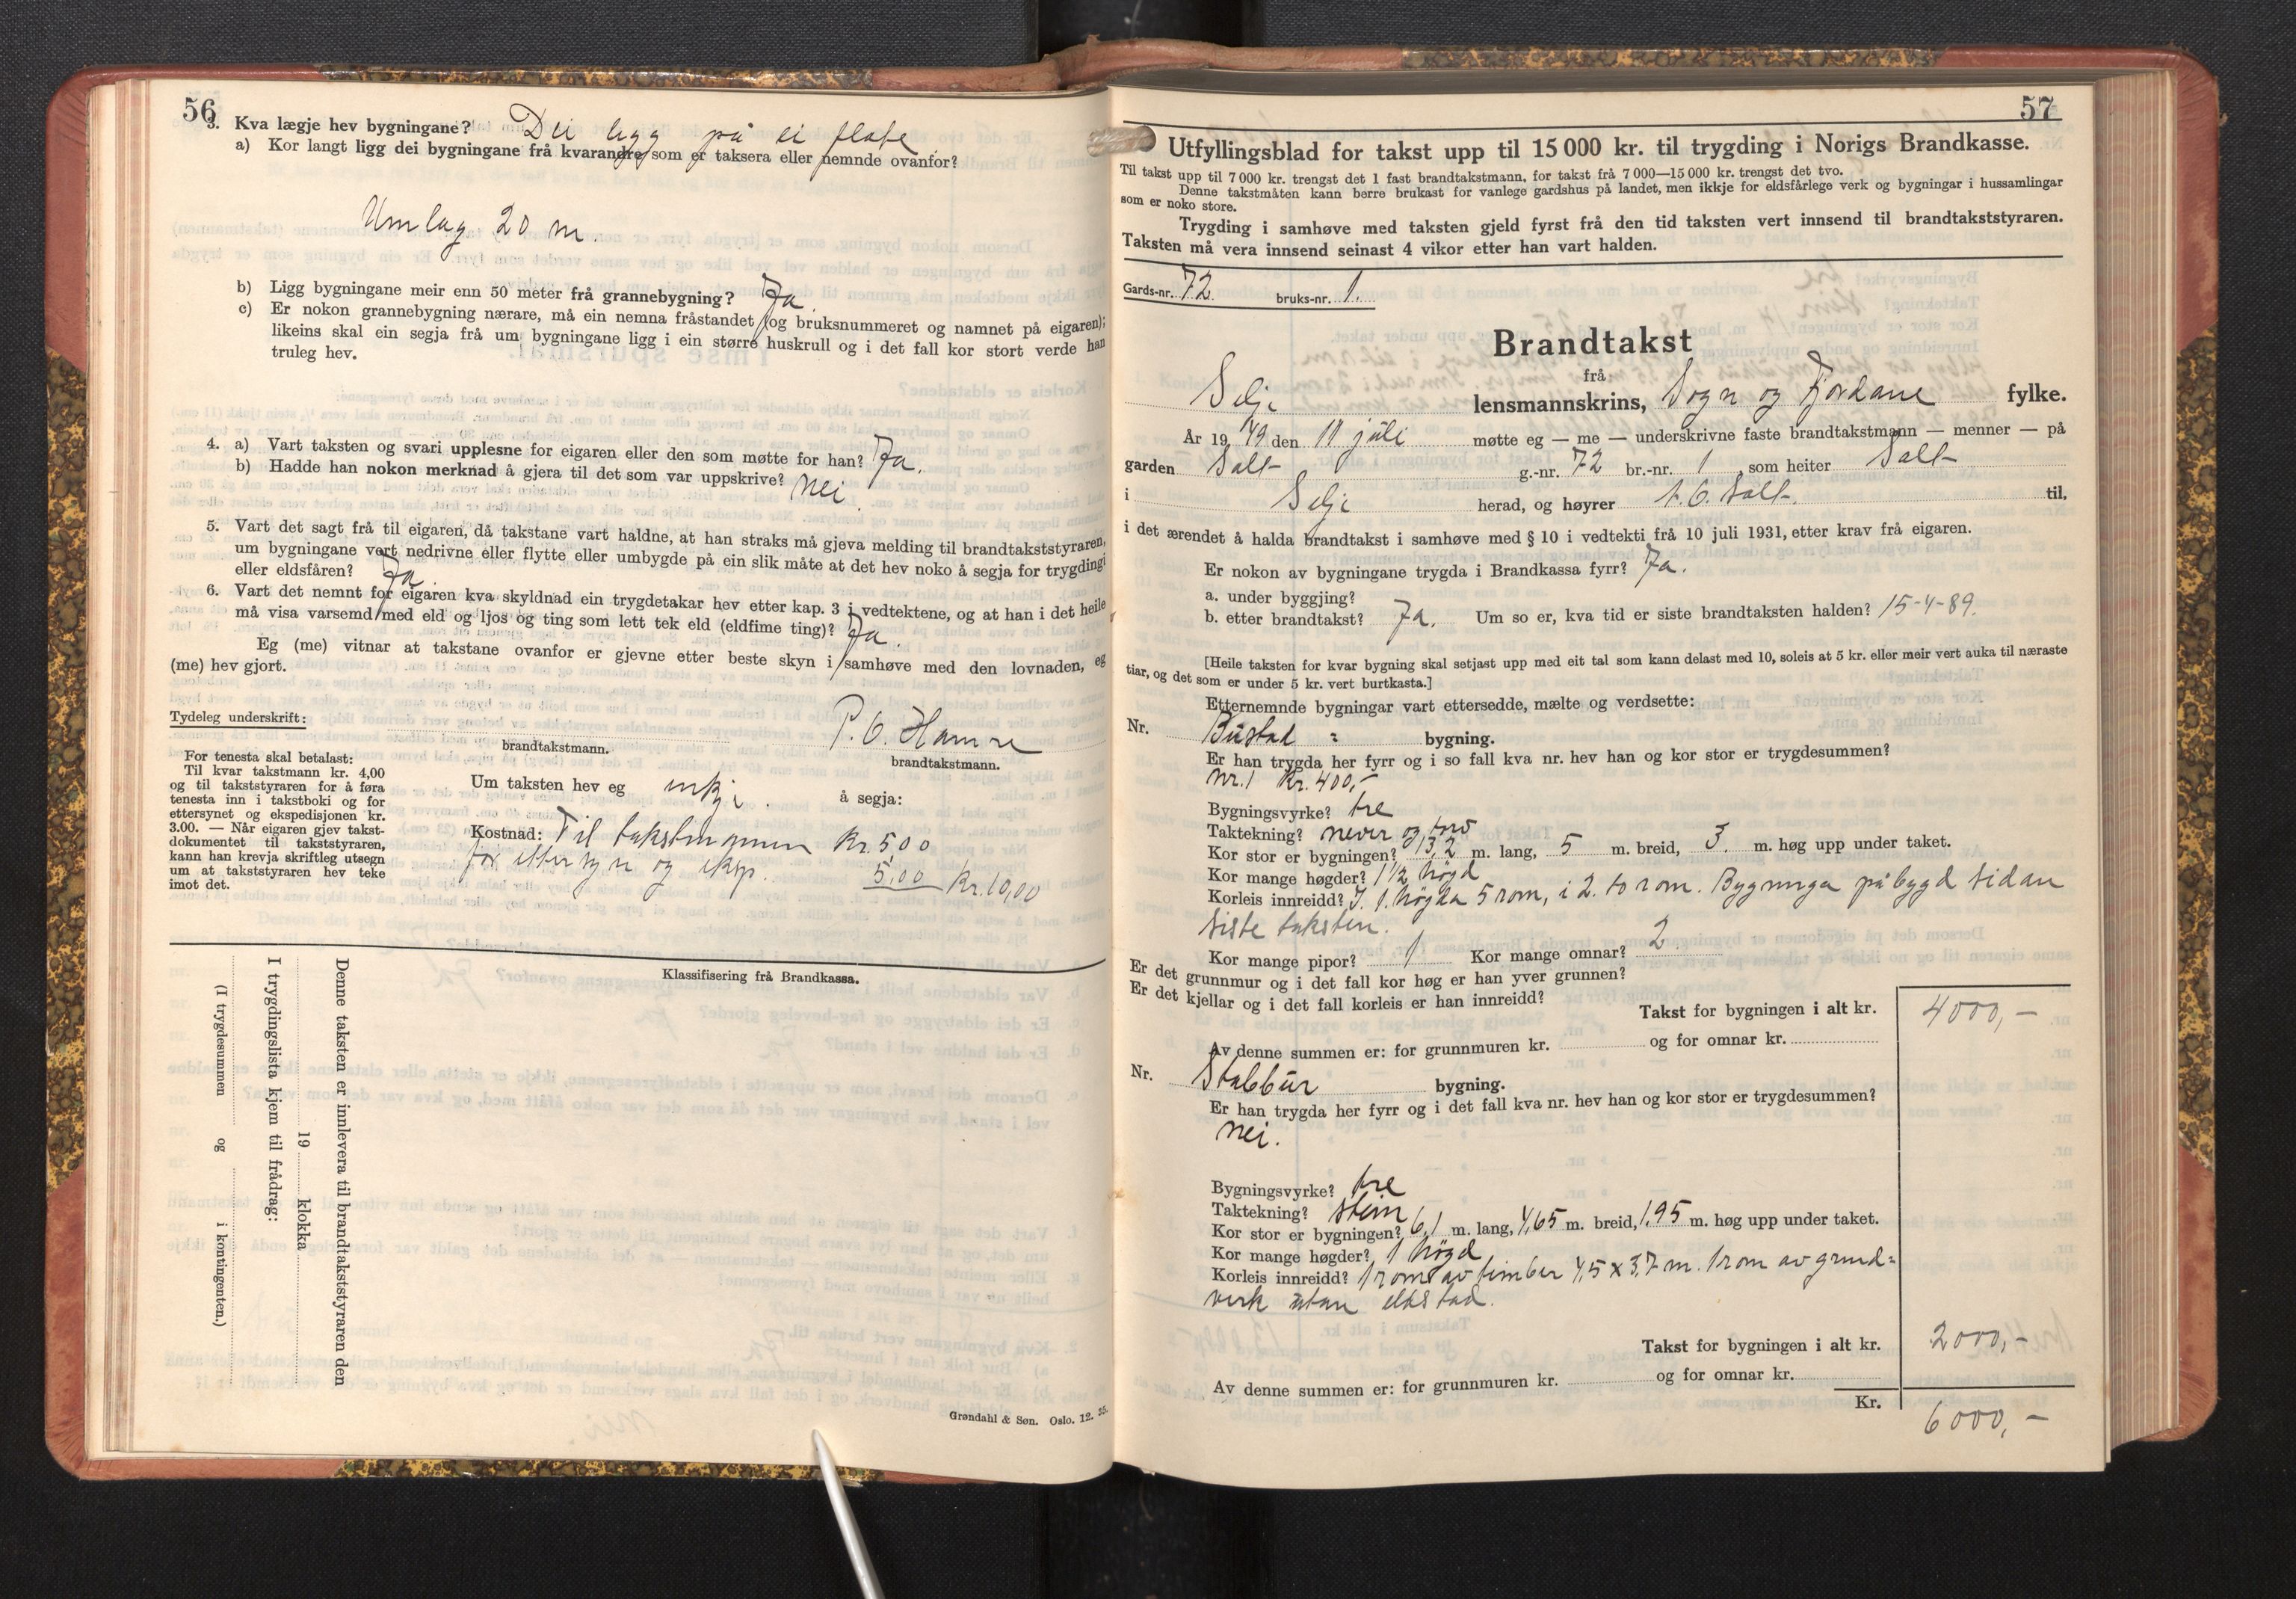 56
3. Kva lægje hev bygningane? Dei ligg på ei flate
a) Kor langt ligg dei bygningane frå kvarandre, som er taksera eller nemnde ovanfor?
Umlag 20 m.
b) Ligg bygningane meir enn 50 meter frå grannebygning? Ja
c) Er nokon grannebygning nærare, må ein nemna fråstandet (og bruksnummeret og namnet på eigaren);
likeins skal ein segja frå um bygningane ligg i ein større huskrull og i det fall kor stort verde han
truleg hev.
4. a) Vart taksten og svari upplesne for eigaren eller den som møtte for han? Ja.
b) Hadde han nokon merknad å gjera til det som var uppskrive? Nei.
5. Vart det sagt frå til eigaren, då takstane vart haldne, at han straks må gjeva melding til brandtakststyraren,
um bygningane vert nedrivne eller flytte eller umbygde på ein slik måte at det hev noko å segja for trygdingi
eller eldsfåren? Ja
6. Vart det nemnt for eigaren kva skyldnad ein trygdetakar hev etter kap. 3 i vedtektene, og at han i det heile
må visa varsemd med eld og ljos og ting som lett tek eld (eldfime ting)? Ja.
Eg (me) vitnar at takstane ovanfor er gjevne etter beste skyn i samhøve med den lovnaden, eg
(me) hev gjort.
Tydeleg underskrift:
P. O. Hamre
brandtakstmann.
brandtakstmann.
For tenesta skal betalast:
Til kvar takstmann kr. 4,00
og til takststyraren for å føra
tenesta inn i takstboki og for
ettersynet og ekspedisjonen kr.
3.00. — Når eigaren gjev takst-
dokumentet til takststyraren,
kann han krevja skriftleg utsegn
um at takststyraren hev teke
imot det.
Um taksten hev eg inkje. å segja:
Kostnad: Til takstmannen Kr. 5,00
for ettersyn og eksp. 5,00 Kr. 10,00
Klassifisering frå Brandkassa.
Denne taksten er innlevera til brandtakststyraren den
19 klokka
I trygdingslista kjem til frådrag:
(I trygdesummen og i kontingenten.)
Grøndahl & Søn. Oslo. 12. 35.
57
Utfyllingsblad for takst upp til 15 000 kr. til trygding i Norigs Brandkasse.
Til takst upp til 7 000 kr. trengst det 1 fast brandtakstmann, for takst frå 7 000—15 000 kr. trengst det tvo.
Denne takstmåten kann berre brukast for vanlege gardshus på landet, men ikkje for eldsfårlege verk og bygningar i hussamlingar
som er noko store.
Trygding i samhøve med taksten gjeld fyrst frå den tid taksten vert innsend til brandtakststyraren.
Taksten må vera innsend seinast 4 vikor etter han vart halden.
Gards-nr. 72 bruks-nr. 1.
Brandtakst
frå
Selje lensmannskrins, Sogn og Fjordane fylke.
År 1949 den 11 juli møtte eg — me — underskrivne faste brandtakstmann — menner — på
garden Salt g.-nr. 72 br.-nr. 1, som heiter Salt
i Selje herad, og høyrer A. O. Salt til,
i det ærendet å halda brandtakst i samhøve med § 10 i vedtekti frå 10 juli 1931, etter krav frå eigaren.
Er nokon av bygningane trygda i Brandkassa fyrr? Ja.
a. under byggjing?
b. etter brandtakst? Ja. Um so er, kva tid er siste brandtaksten halden? 15-4-89.
[Heile taksten for kvar bygning skal setjast upp med eit tal som kann delast med 10, soleis at 5 kr. eller meir vert auka til næraste
tiar, og det som er under 5 kr. vert burtkasta.]
Etternemnde bygningar vart ettersedde, mælte og verdsette:
Nr. Bustad - bygning.
Er han trygda her fyrr og i so fall kva nr. hev han og kor stor er trygdesummen?
Nr. 1 Kr. 400,-
Bygningsvyrke? tre
Taktekning? never og torv
Kor stor er bygningen? 13,2 m. lang, 5 m. breid, 3. m. høg upp under taket.
Kor mange høgder? 1 1/2 högd
Korleis innreidd? I 1. högda 5 rom, i 2. to rom. Bygninga påbygd sidan
siste taksten.
Kor mange pipor? 1 Kor mange omnar? 2
Er det grunnmur og i det fall kor høg er han yver grunnen?
Er det kjellar og i det fall korleis er han innreidd?
Takst for bygningen i alt kr. 4000,-
Av denne summen er: for grunnmuren kr. og for omnar kr.
Nr. Stabbur bygning.
Er han trygda her fyrr og i det fall kva nr. hev han og kor stor er trygdesummen?
Nei.
Bygningsvyrke? tre
Taktekning? stein
Kor stor er bygningen? 6,1 m. lang, 4,65 m. breid, 1,95 m. høg upp under taket.
Kor mange høgder? 1 högd
Korleis innreidd? 1 rom av timber 4,5 x 3,7 m. 1 rom av grind-
verk utan eldstad.
Takst for bygningen i alt kr. 2000,-
Av denne summen er: for grunnmuren kr. og for omnar kr.
Kr. 6000,-